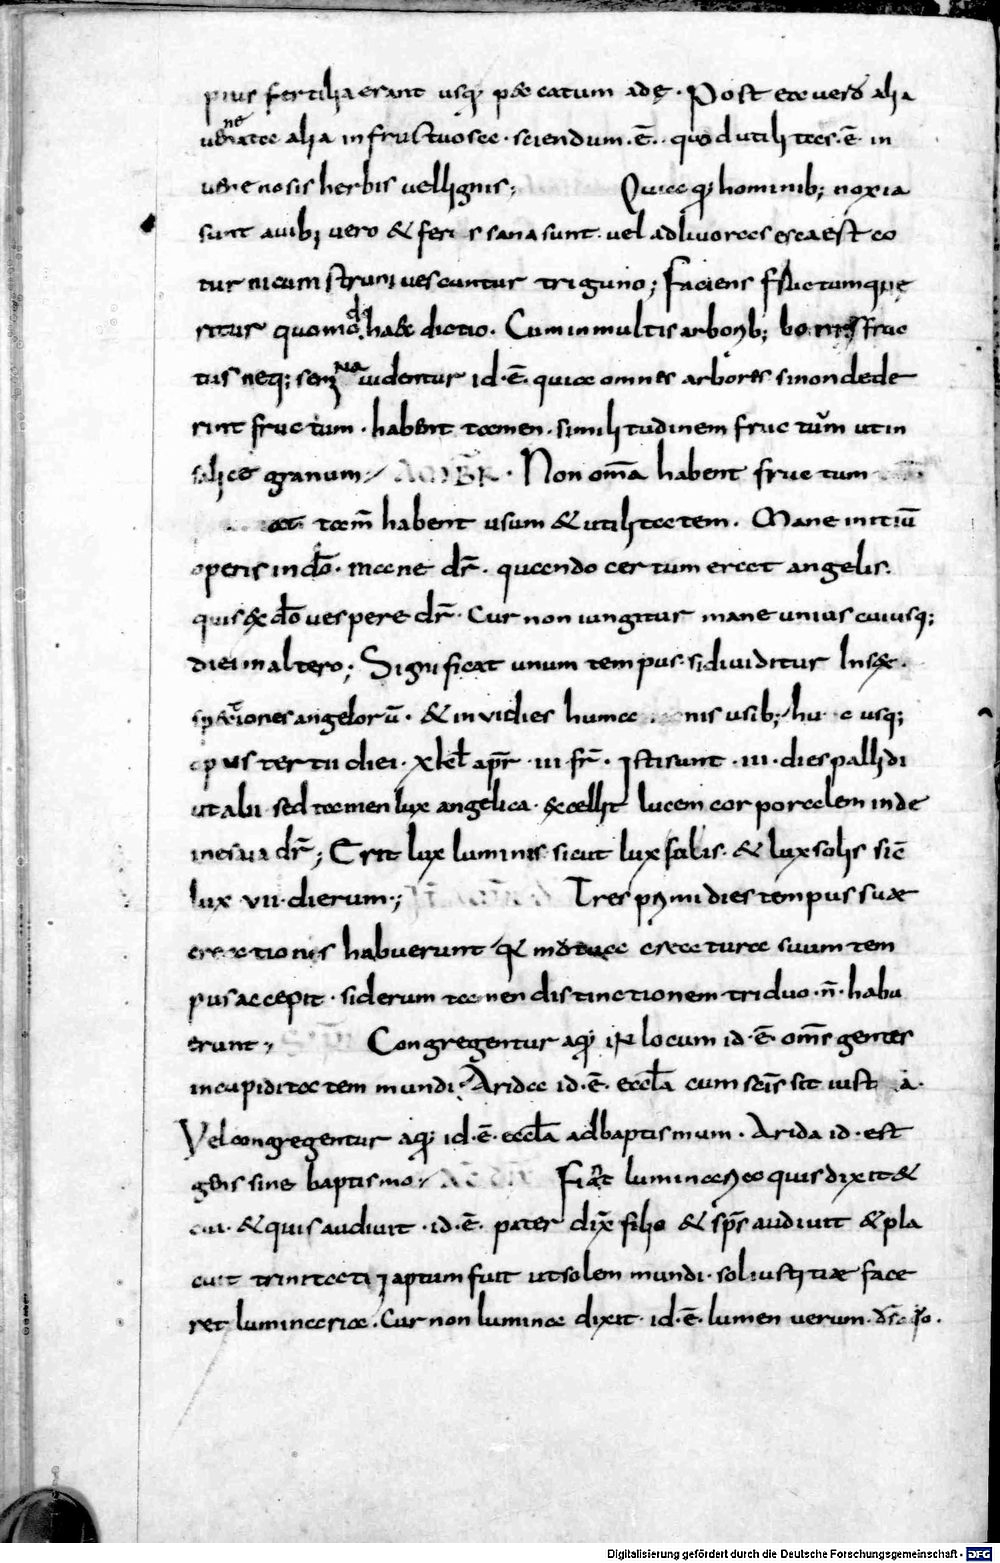 prius fertilia erant usq; peccatum adę · Post ea vero alia
venenata alia infructuosa · sciendum · ē · quod utilitas · ē · in
venenosis herbis vel lignis ;, Quia q; hominib; noxia
sunt avibꝫ vero & feris sana sunt · vel ad livorcs esca est co
turnicum strum vescuntur triguno ; Faciens fructum quę
ritur quomodo habet dictio · Cum in multis arborib; boni fruc
tus neq; semina videntur id · ē · quia omnes arbores si non dede
rint fructum · habent tamen · similitudinem fructum ut in
salice granum ;, AMBR · Non om̄a habent fructum
at tam̄ habent usum & utilitatem · Mane initiū
operis in do · mane dr̄ · quando certum erat angelis ·
quis & do vespere dr̄ · Cur non iungitur mane unius cuiusq;
diei in altero ; Significat unum tempus · si dividitur In sex ·
angelorū · & in vi dies humanis usib; huc usq;
opus tertii diei · x kl apr̄ · iii fr̄ · Isti sunt · iii · dies pallidi
ut alii sed tamen lux angelica · excellit lucem corporalem inde
in esaia dr̄ ; Erit lux luminis sicut lux solis · & lux solis sic̄
lux · vii · dierum ;, Tres primi dies tempus suae
creationis habuerunt q creatura suum tem
pus accepit · siderum tamen distinctionem triduo · n̄ · habu
erunt ;, Congregentur aq; in locum id · ē · om̄s gentes
in cupiditatem mundi · Arida id · ē · eccl̄a cum sit iustitia ·
Vel congregentur aq; id · ē · eccl̄a ad baptismum · Arida id · est
gens sine baptismo ;, Fiat luminaria quis dixit &
cui · & quis audivit · id · ē · pater dix̄ filio & sp̄s audivit & pla
cuit trinitati ⁊ aptum fuit ut solem mundi · sol iustitiae face
ret luminaria · Cur non lumina dixit · id · ē · lumen verum ·
Digitalisierung gefördert durch die Deutsche Forschungsgemeinschaft - DFG